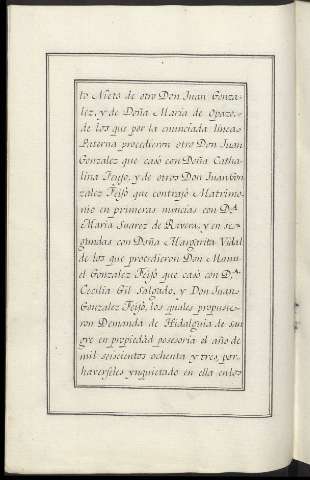 to Nieto de otro Don Juan Gonza-
lez, y de Doña Maria de Opazo,
de los que por la enunciada linea
Paterna procedieron otro Don Juan
Gonzalez que casò con Doña Catha-
lina Feijo, y de otros Don Juan Gon-
zalez Feijò que contrajò Matrimo-
nio en primeras nuncias con D.ª
Maria Suarez de Rivera, y en se-
gundas con Doña Margarita Vidal
de los que procedieron Don Manu-
el Gonzalez Feijò que casò con D.ª
Cecilia Gil Salgado, y Don Juan
Gonzalez Feijò, los quales propusie-
ron Demanda de Hidalguia de san-
gre en propiedad posesoria el año de
mil seiscientos ochenta y tres, por
haverseles ynquietado en ella en los